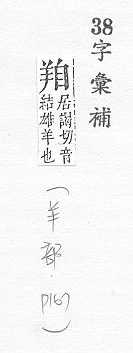 38
字彙補
居謁切音
結雄羊也
(羊部.P167)